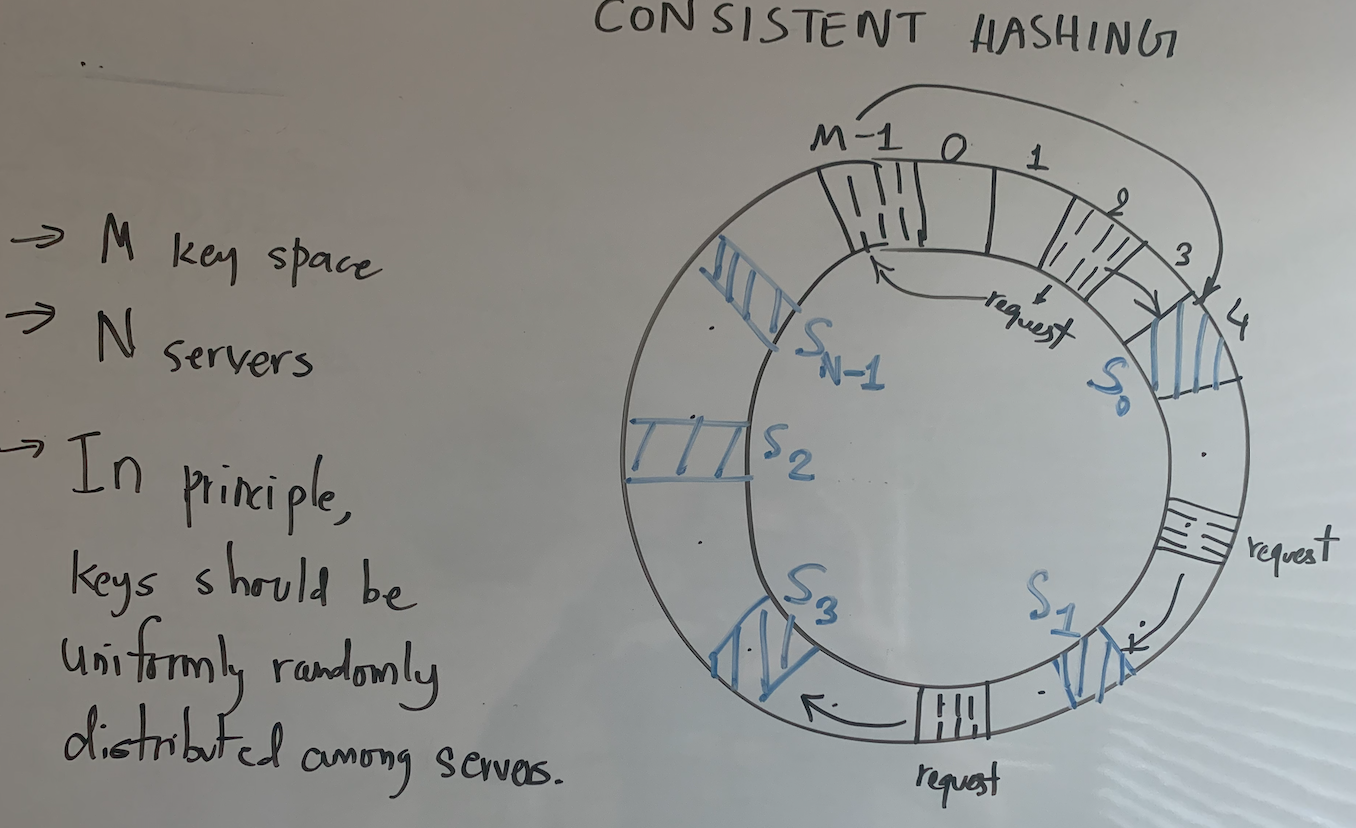 CONSISTENT HASHING
→ M key space
→ N servers
→ In principle,
keys should be
uniformly randomly
distributed among servers.
M-1
0
1
2
3
4
request
S₀
request
S₁
request
S₃
S₂
S_N-1